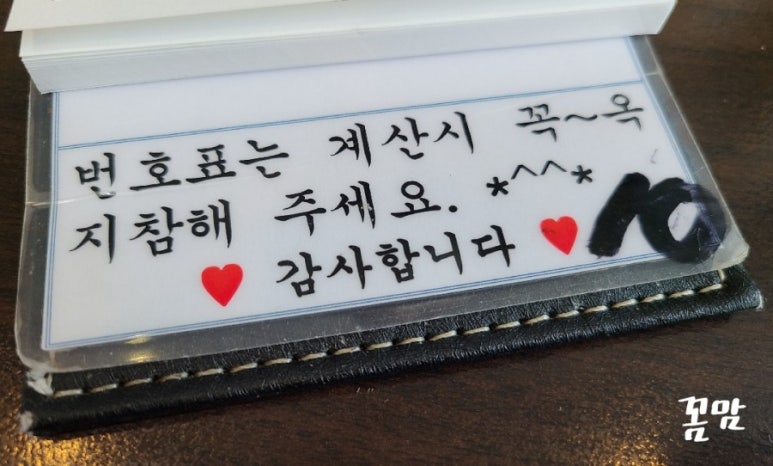 번호표는 계산시 꼭~옥
지참해 주세요. *^^*
♥ 감사합니다 ♥
10
꼼맘